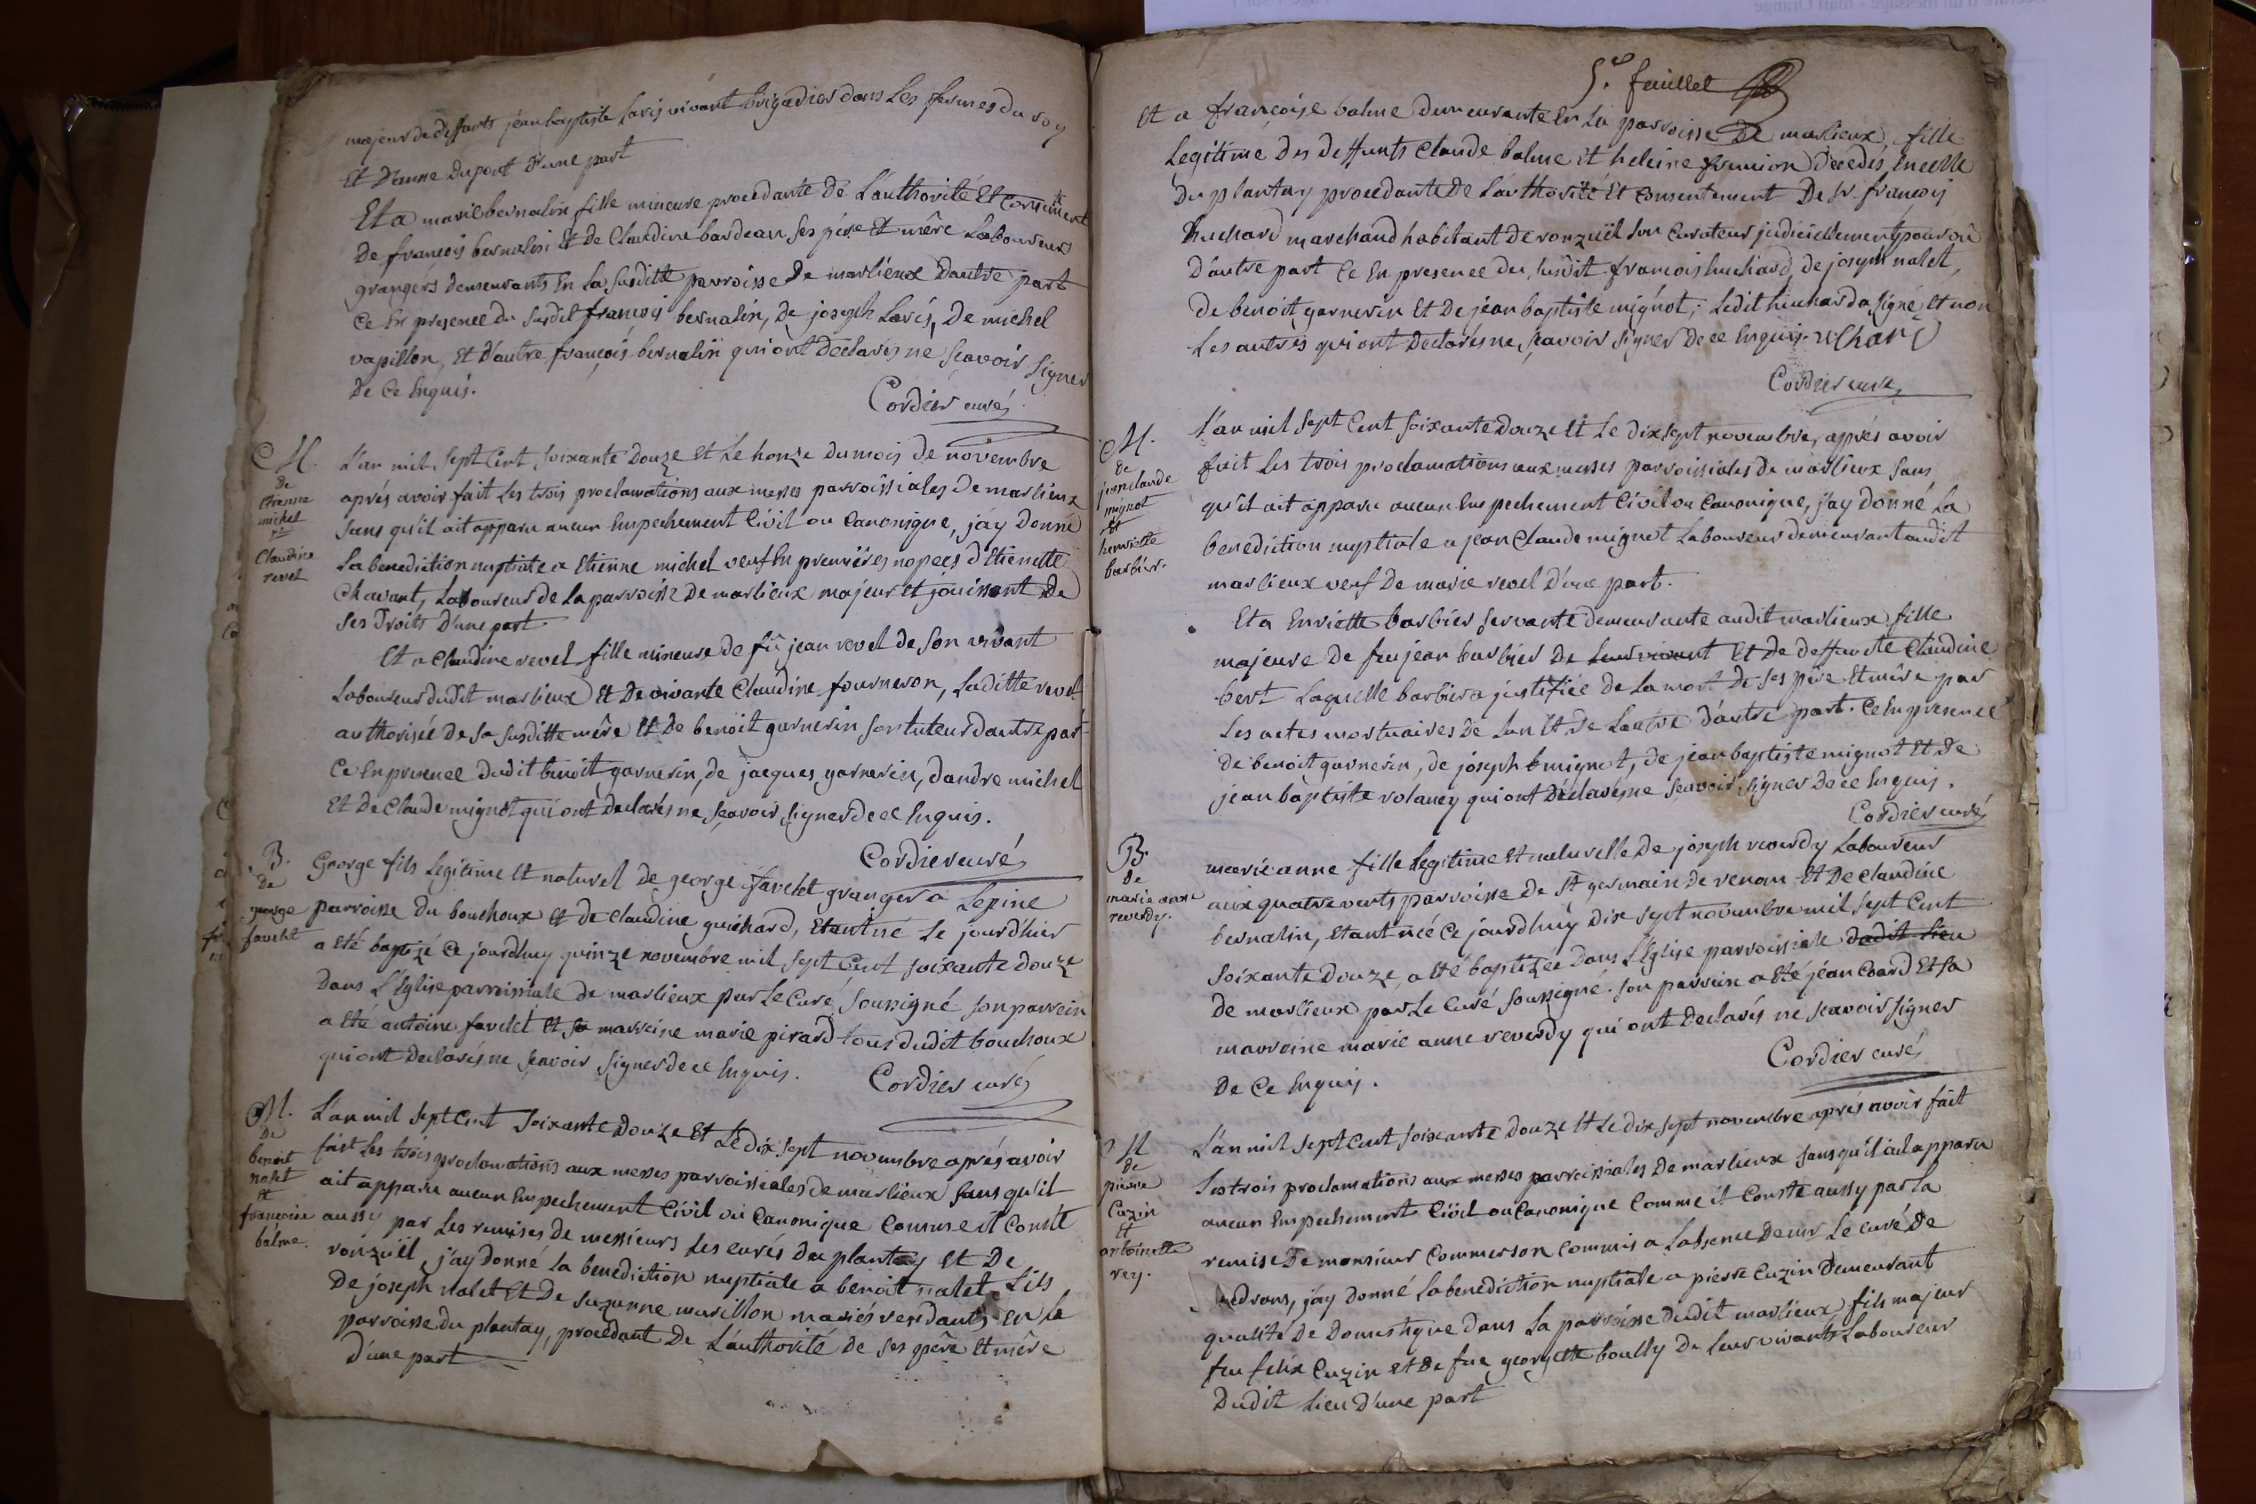 majeur de deffunts jean baptiste Lavis vivant brigadier dans Les fermes du roy
Et D'anne Dupont D'une part
Et a marie bernalin fille mineure procedante de L'authorité Et Consentement
De françois bernalin Et de Claudine bardean ses pére Et mére Laboureurs
grangérs demeurants En La Susditte parroisse De marlieux D'autre part
Ce En presence du Susdit françois bernalin, De joseph Lavis, De michel
vapillon, Et D'autre françois bernalin qui ont Declarés ne Scavoir Signer
De Ce Enquis.
Cordier curé
M.
de
Etienne
michel
et
Claudine
revel
L'an mil Sept Cent Soixante Douze Et Le honze du mois de novembre
aprés avoir fait Les trois proclamations aux messes parroissiales De marlieux
Sans qu'il ait apparu aucun Empechement Civil ou Canonique, j'ay Donné
La benediction nuptiale a Etienne michel veuf En premiéres nopces d'Etienette
Chavant, Laboureur de La parroisse De marlieux majeur Et jouissant De
Ses Droits D'une part
Et a Claudine revel fille mineure de fû jean revel de Son vivant
Laboureur dudit marlieux Et De vivante Claudine fourneron, Laditte revel
authorisée De Sa Susditte mére Et De benoit garnerin Son tuteur d'autre part
Ce En presence dudit benoit garnerin, de jacques garnerin, D'andre michel
Et De Claude mignot qui ont Declarés ne Scavoir Signer de ce Enquis.
Cordier curé
B.
De
george
favelet
George fils Legitime Et naturel de george favelet granger a Lepine
parroisse du bouchoux Et de Claudine guichard, Etant né Le jourd'hier
a Eté baptizé Ce jourdhuy quinze novembre mil Sept Cent Soixante Douze
Dans L'Eglise parroissiale De marlieux par Le Curé Soussigné Son parrein
a Eté antoine favelet Et Sa marreine marie pirard tous dudit bouchoux
qui ont Declarés ne Scavoir Signer de ce Enquis.
Cordier curé
M.
De
benoit
nalet
Et
françoise
balme.
L'an mil Sept Cent Soixante Douze Et Le dix Sept novembre aprés avoir
fait Les trois proclamations aux messes parroissiales de marlieux Sans qu'il
ait apparu aucun Empechement Civil ou Canonique Comme il Conste
aussy par Les remises de messieurs Les curés du plantay Et De
ronzuël j'ay donné La benediction nuptiale a benoit nalet fils
De joseph nalet Et De Suzanne marillon mariés rendants En La
parroisse du plantay, procedant De L'authorité de Ses pére Et mére
D'une part
5.e feuillet
Et a françoise balme demeurante En La parroisse De marlieux, fille
Legitime Des deffunts Claude balme Et heleine decedés En celle
Du plantay procedante De L'authorité Et Consentement De Sr. françois
huchard marchand habitant de ronzuël Son Curateur judiciellement pourvû
D'autre part Ce En presence du, Susdit françois huchard, de joseph nalet,
de benoit garnerin Et De jean baptiste mignot; Ledit huchard a Signé, Et non
Les autres qui ont Declarés ne Scavoir Signer De ce Enquis.
Cordier curé
M.
De
jean claude
mignot
Et
henriette
barbier.
L'an mil Sept Cent Soixante Douze Et Le dix Sept novembre, aprés avoir
fait Les trois proclamations aux messes parroissiales de marlieux Sans
qu'il ait apparu aucun Empechement Civil ou Canonique, j'ay donné La
benediction nuptiale a jean Claude mignot Laboureur demeurant audit
marlieux veuf De marie revel D'une part.
Et a Enriette barbier Servante demeurante audit marlieux fille
majeure De feu jean barbier De Leur vivant Et De deffuncte Claudine
bert Laquelle barbier a justifiée De La mort De Ses pére Et mére par
Les actes mortuaires De L'un Et de L'autre D'autre part. Ce En presence
De benoit garnerin, de joseph mignot, De jean baptiste mignot Et De
jean baptiste volancy qui ont Declarés ne Scavoir Signer De ce Enquis.
Cordier curé
B.
De
marie anne
reverdy.
marie anne fille Legitime Et naturelle De joseph reverdy Laboureur
aux quatre vents parroisse De St germain de renom Et De Claudine
bernalin, Etant née Ce jourdhuy dix Sept novembre mil Sept Cent
Soixante Douze, a Eté baptizée Dans L'Eglise parroissiale dudit Lieu
De marlieux par Le Curé Soussigné. Son parrein a Eté jean Coard Et Sa
marreine marie anne reverdy qui ont Declarés ne Scavoir Signer
De Ce Enquis.
Cordier curé
M
de
pierre
Cuzin
Et
antoinette
rey.
L'an mil Sept Cent Soixante Douze Et Le Dix Sept novembre aprés avoir fait
Les trois proclamations aux messes parroissiales De marlieux Sans qu'il ait apparu
aucun Empechement Civil ou Canonique Comme il Conste aussy par La
remise De monsieur Commerson Commis a L'absence De mr Le curé De
j'ay Donné La benediction nuptiale a pierre Cuzin Demeurant
qualité De Domestique Dans La parroisse dudit marlieux, fils majeur
feu felix Cuzin Et De fue georgette boully De Leur vivants Laboureur
Dudit Lieu D'une part